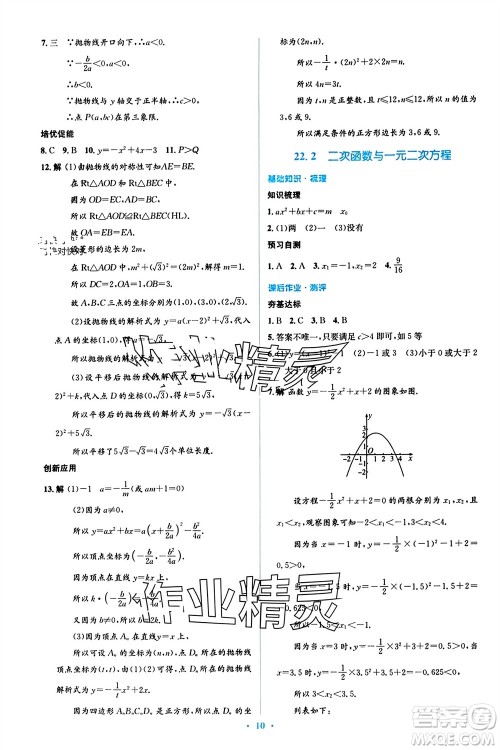 7. 三 ∵抛物线开口向下,∴a<0.
∵-b/2a<0,
∴b<0.
∵抛物线与 y 轴交于正半轴,∴c>0.
∴点 P(a,bc)在第三象限.
培优促能
8. C 9. B 10. A 11. y=-x²+4x-3
12. 解 由抛物线的对称性可知AE=BE.
在 Rt△AOD 和 Rt△BEC 中,
因为 OA=EB=EA,
所以 Rt△AOD≌Rt△BEC(HL).
故 OA=EB=EA.
设菱形的边长为 2m,
在 Rt△AOD 中,
解得 m=1.
所以 DC=2,OA=1,OB=3.
故 A,B,C 三点的坐标分别为(1,0),
设抛物线的解析式为 y=a(x-2)²+√3,代入
点 A 的坐标(1,0),得 a=-√3.
所以抛物线的解析式为 y=-√3(x-
2)²+√3.
设平移后的抛物线的解析式为 y=-√3(x-
2)²+k,代入点 D 的坐标(0,√3),得 k=5√3.
所以平移后的抛物线的解析式为 y=-√3(x-
2)²+5√3.
所以平移了5√3-√3=4√3个单位.
创新应用
13. 解 (1)-1 a=-1/m(或 am+1=0)
(2)因为 a≠0,
所以 y=ax²+bx=a(x+b/2a)²-b²/4a.
所以顶点坐标为(-b/2a,-b²/4a).
因为顶点在直线 y=kx 上,
所以 k·(-b/2a)=-b²/4a.
又因为 b≠0,所以 b=2k.
(3)因为顶点 Aₙ 在直线 y=x 上,
所以可设点 Aₙ 的坐标为(n,n),点 Dₙ 所在的
抛物线顶点坐标为(t,t).
由(1)(2)可得,点 Dₙ 所在的抛物线的
解析式为 y=-1/t x²+2x.
因为四边形 AₙBₙCₙDₙ 是正方形,
标为(2n,n).
所以-1/t(2n)²+2×2n=n.
所以 4n=3t.
因为 t,n 是正整数,且 t≤12,n≤12,所以 n=
3,6或9.
所以满足条件的正方形边长为 3,6或9.
22.2 二次函数与一元二次方程
基础知识·梳理
知识梳理
1. ax²+bx+c x₀
2. (1)两 (2)一 (3)没有
预习自测
1. A 2. A 3. x₁=-1,x₂=2 4. 9/16
课后作业·测评
夯基达标
1. B 2. D 3. 22 4. B
5. 答案不唯一,只要满足 c>4 即可,如 c=5
7. 解 函数 y=-1/2x²+x+2 的图象如图.
y
4
3
2
1
-2 -1 O 1 2 3 4 x
-1
-2
设方程-1/2x²+x+2=0 的两根为 x₁,x₂,且
x₁<x₂,观察图象可知-2<x₁<-1,3<x₂<4.
因为当 x=-1.5 时,y=-1/2×(-1.5)²-1.5+2=
-0.625<0,
当 x=-1 时,y=-1/2×(-1)²-1+2=
0.5>0,
所以-1.5<x₁<-1.
因为当 x=3 时,y=-1/2×3²+3+2=0.5>0,
当 x=3.5 时,y=-1/2×3.5²+3.5+2=
-0.625<0,
所以 3<x₂<3.5.
列表如下:
10
作业精灵
作业精灵